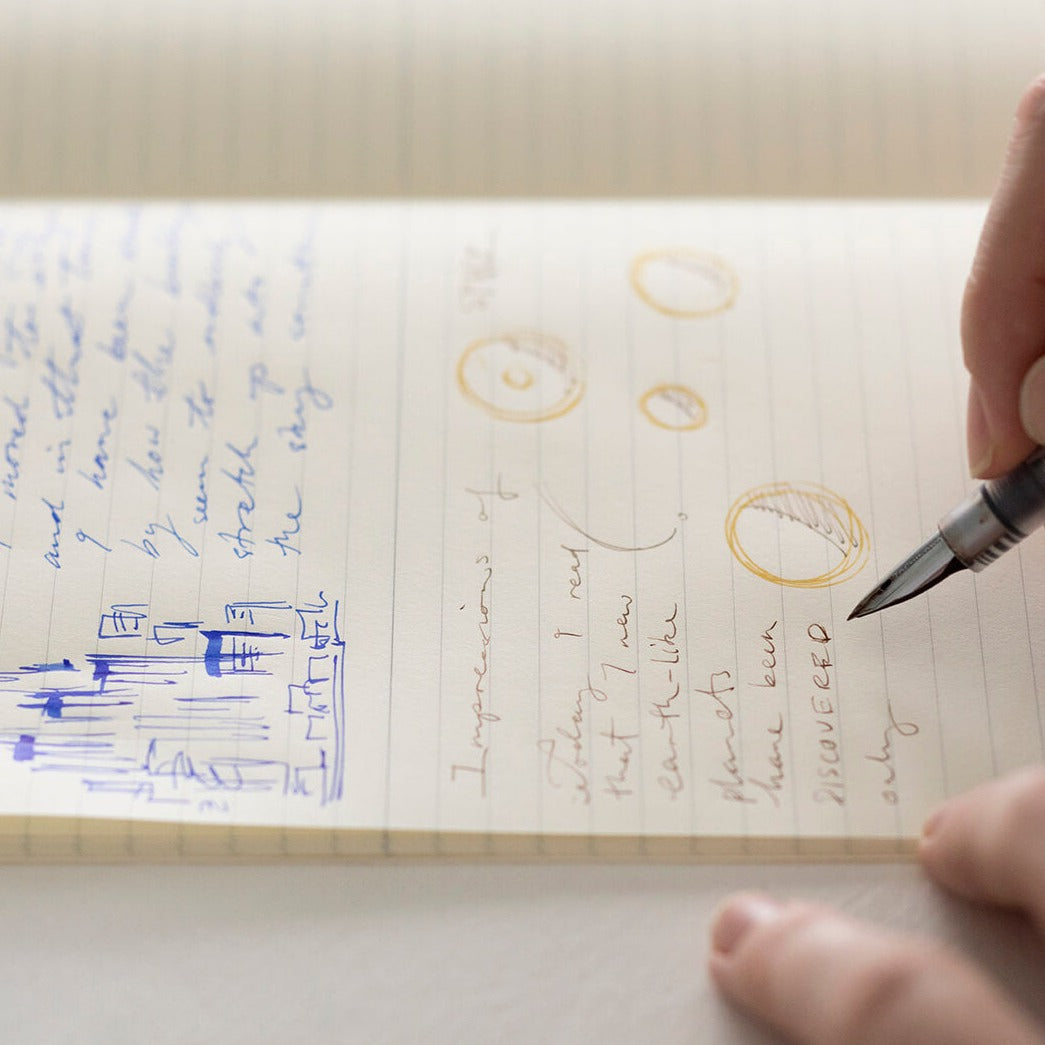 moved
and in that
I have been
by how the
seem to
stretch up and
the sky
Impressions of
Today I read
that 7 new
earth-like
planets
have been
DISCOVERED
only